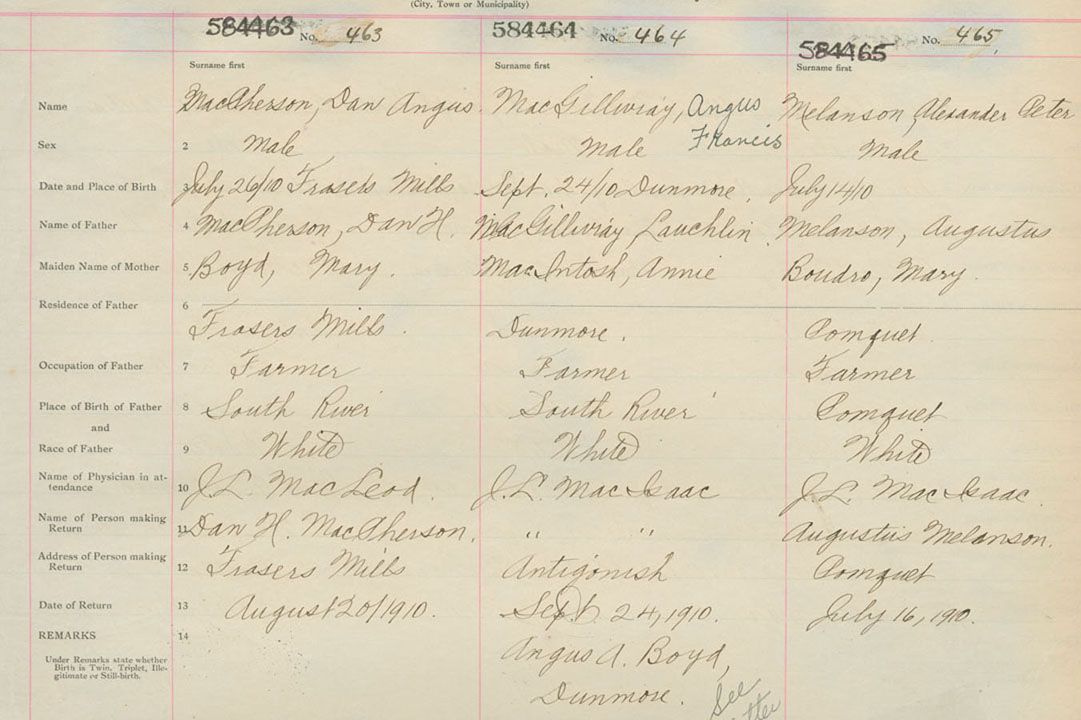 (City, Town or Municipality)
584463 No. 463 584464 No. 464 584465 No. 465
Surname first Surname first Surname first
Name MacPherson, Dan Angus. MacGillivray, Angus Francis Melanson, Alexander Peter
Sex 2 Male Male Male
Date and Place of Birth 3 July 26/10 Frasers Mills Sept. 24/10 Dunmore, July 14/10
Name of Father 4 MacPherson, Dan H. MacGillivray Lauchlin Melanson, Augustus
Maiden Name of Mother 5 Boyd, Mary. MacIntosh, Annie Boudro, Mary.
Residence of Father 6 Frasers Mills. Dunmore. Pomquet
Occupation of Father 7 Farmer Farmer Farmer
Place of Birth of Father 8 South River South River Pomquet
and
Race of Father 9 White White White
Name of Physician in at-
tendance 10 J.L. MacLeod. J.L. MacIsaac J.L. MacIsaac.
Name of Person making
Return 11 Dan H. MacPherson. " " Augustus Melanson.
Address of Person making
Return 12 Frasers Mills Antigonish Pomquet
Date of Return 13 August 20/1910. Sept 24, 1910. July 16, 1910.
REMARKS 14
Under Remarks state whether
Birth is Twin, Triplet, Ille-
gitimate or Still-birth.
Angus A. Boyd,
Dunmore.
See